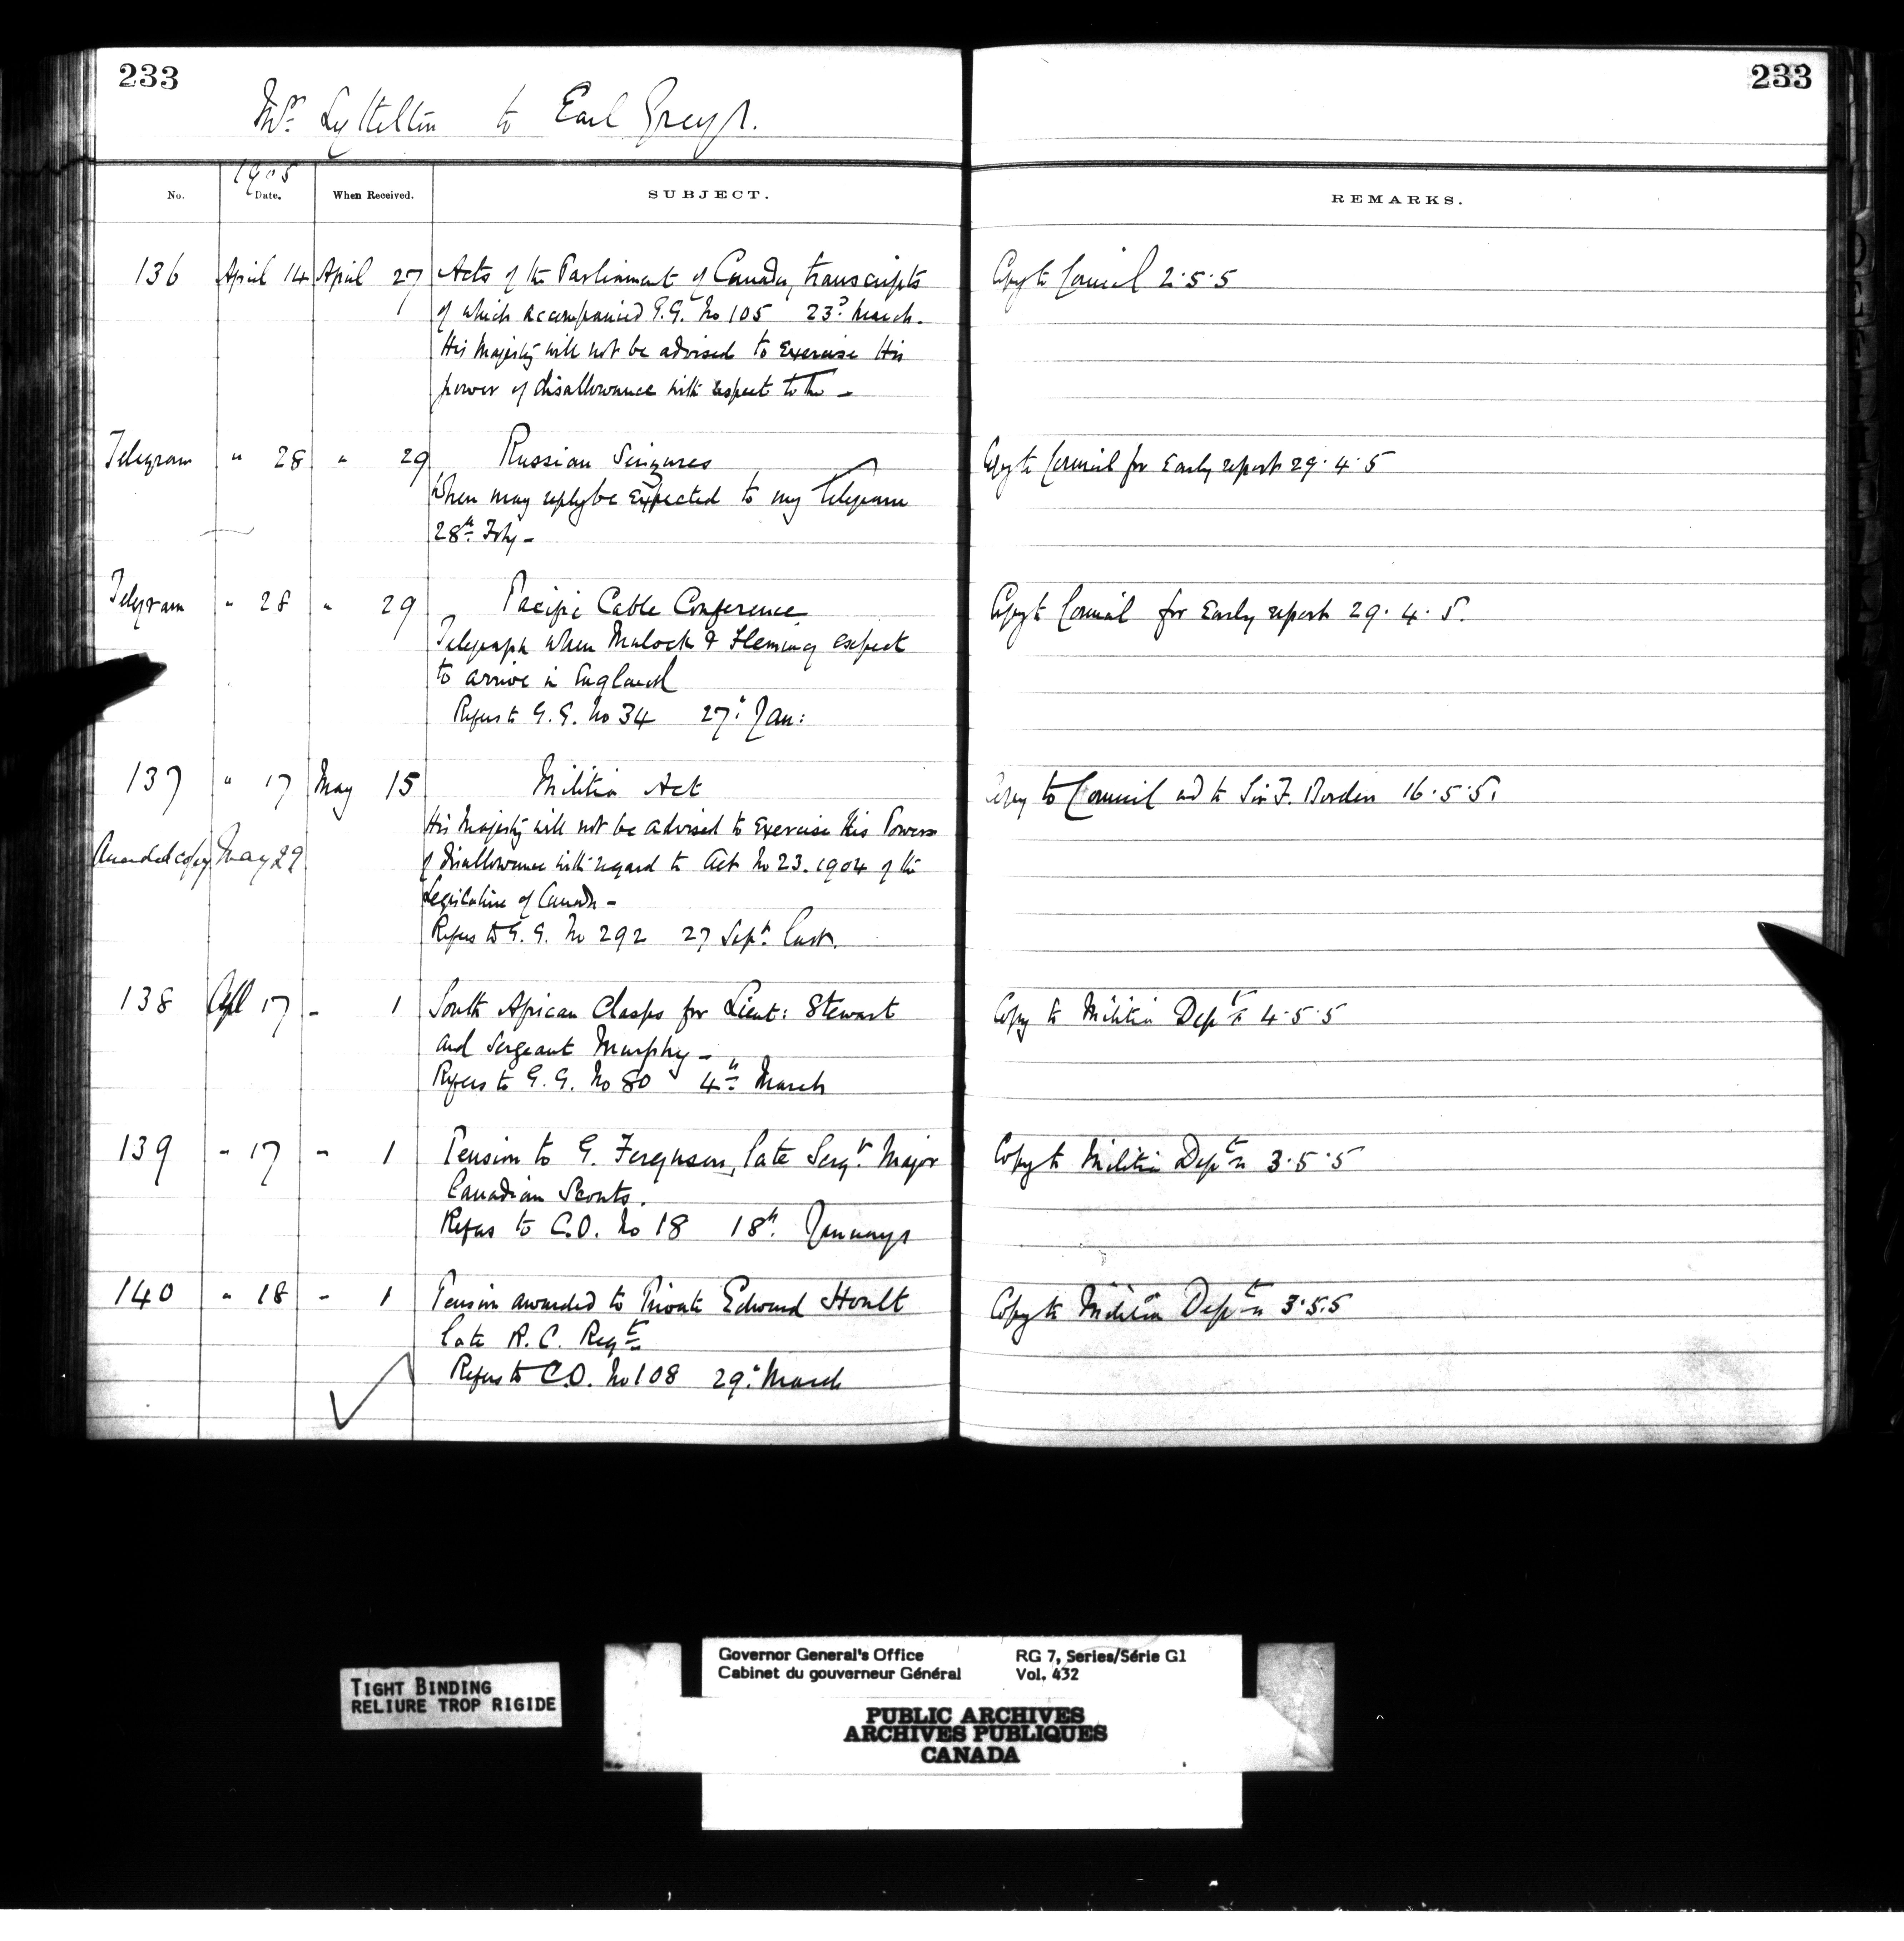 233
233
Mr Lyttelton to Earl Grey.
1905
No. Date. When Received. SUBJECT. REMARKS.
136 April 14 April 27 Acts of the Parliament of Canada, transcripts Copy to Council 2.5.5
of which accompanied G.G. No 105 23d March.
His Majesty will not be advised to exercise His
power of disallowance with respect to the —
Telegram " 28 " 29 Russian Seizures Copy to Council for Early report 29.4.5
When may reply be expected to my Telegram
28th Feby —
Telegram " 28 " 29 Pacific Cable Conference Copy to Council for Early report 29.4.5.
Telegraph when Mulock & Fleming expect
to arrive in England
Refers to G.G. No 34 27th Jan:
137 " 17 May 15 Militia Act Copy to Council and to Sir F. Borden 16.5.5.
His Majesty will not be advised to exercise His Powers
Amended copy May 29 of disallowance with regard to Act No 23. 1904 of the
Legislature of Canada —
Refers to G.G. No 292 27 Sept. last.
138 Apl 17 " 1 South African Clasps for Lieut: Stewart Copy to Militia Dept 4.5.5
and Sergeant Murphy —
Refers to G.G. No 80 4th March
139 " 17 " 1 Pension to G. Ferguson, late Sergt. Major Copy to Militia Dept 3.5.5
Canadian Scouts.
Refers to C.O. No 18 18th. January
140 " 18 " 1 Pension awarded to Private Edward Hoult Copy to Militia Dept 3.5.5
late R.C. Regt
Refers to C.O. No 108 29th March
TIGHT BINDING
RELIURE TROP RIGIDE
Governor General's Office RG 7, Series/Série G1
Cabinet du gouverneur Général Vol. 432
PUBLIC ARCHIVES
ARCHIVES PUBLIQUES
CANADA